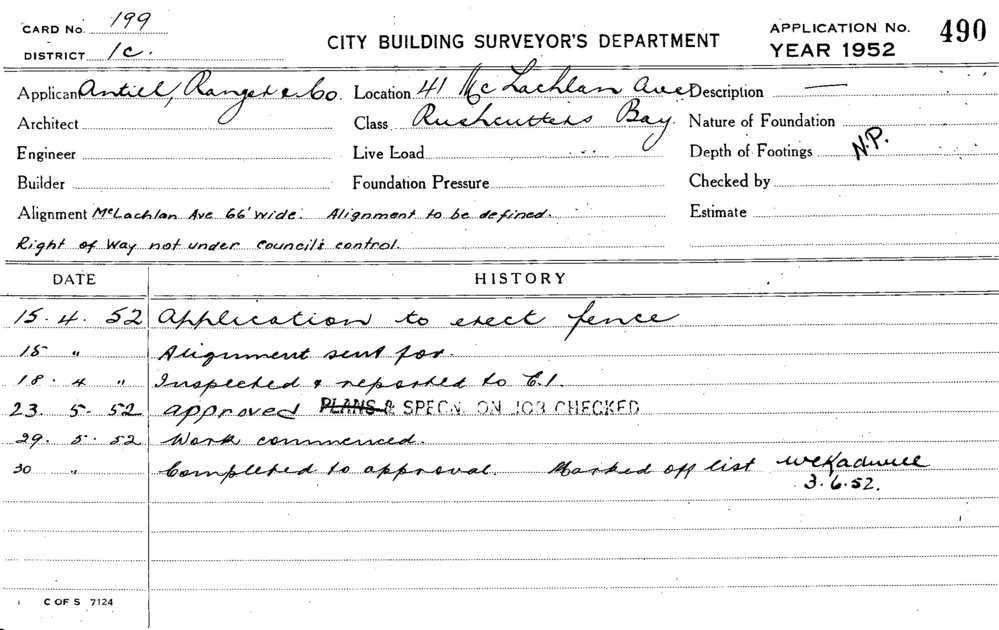 CARD No. 199
DISTRICT 1C.
CITY BUILDING SURVEYOR'S DEPARTMENT
APPLICATION No. 490
YEAR 1952
Applicant Antill, Ranger & Co. Location 41 McLachlan Ave Description —
Architect Class Rushcutters Bay Nature of Foundation
Engineer Live Load Depth of Footings N.P.
Builder Foundation Pressure Checked by
Alignment McLachlan Ave 66' wide. Alignment to be defined. Estimate
Right of Way not under council's control.
DATE HISTORY
15. 4. 52 Application to erect fence
15 " Alignment sent for.
18. 4 " Inspected & reported to C.I.
23. 5. 52 approved PLANS & SPECN. ON JOB CHECKED
29. 5. 52 Work commenced.
30 " Completed to approval. Marked off list
3.6.52.
C OF S 7124